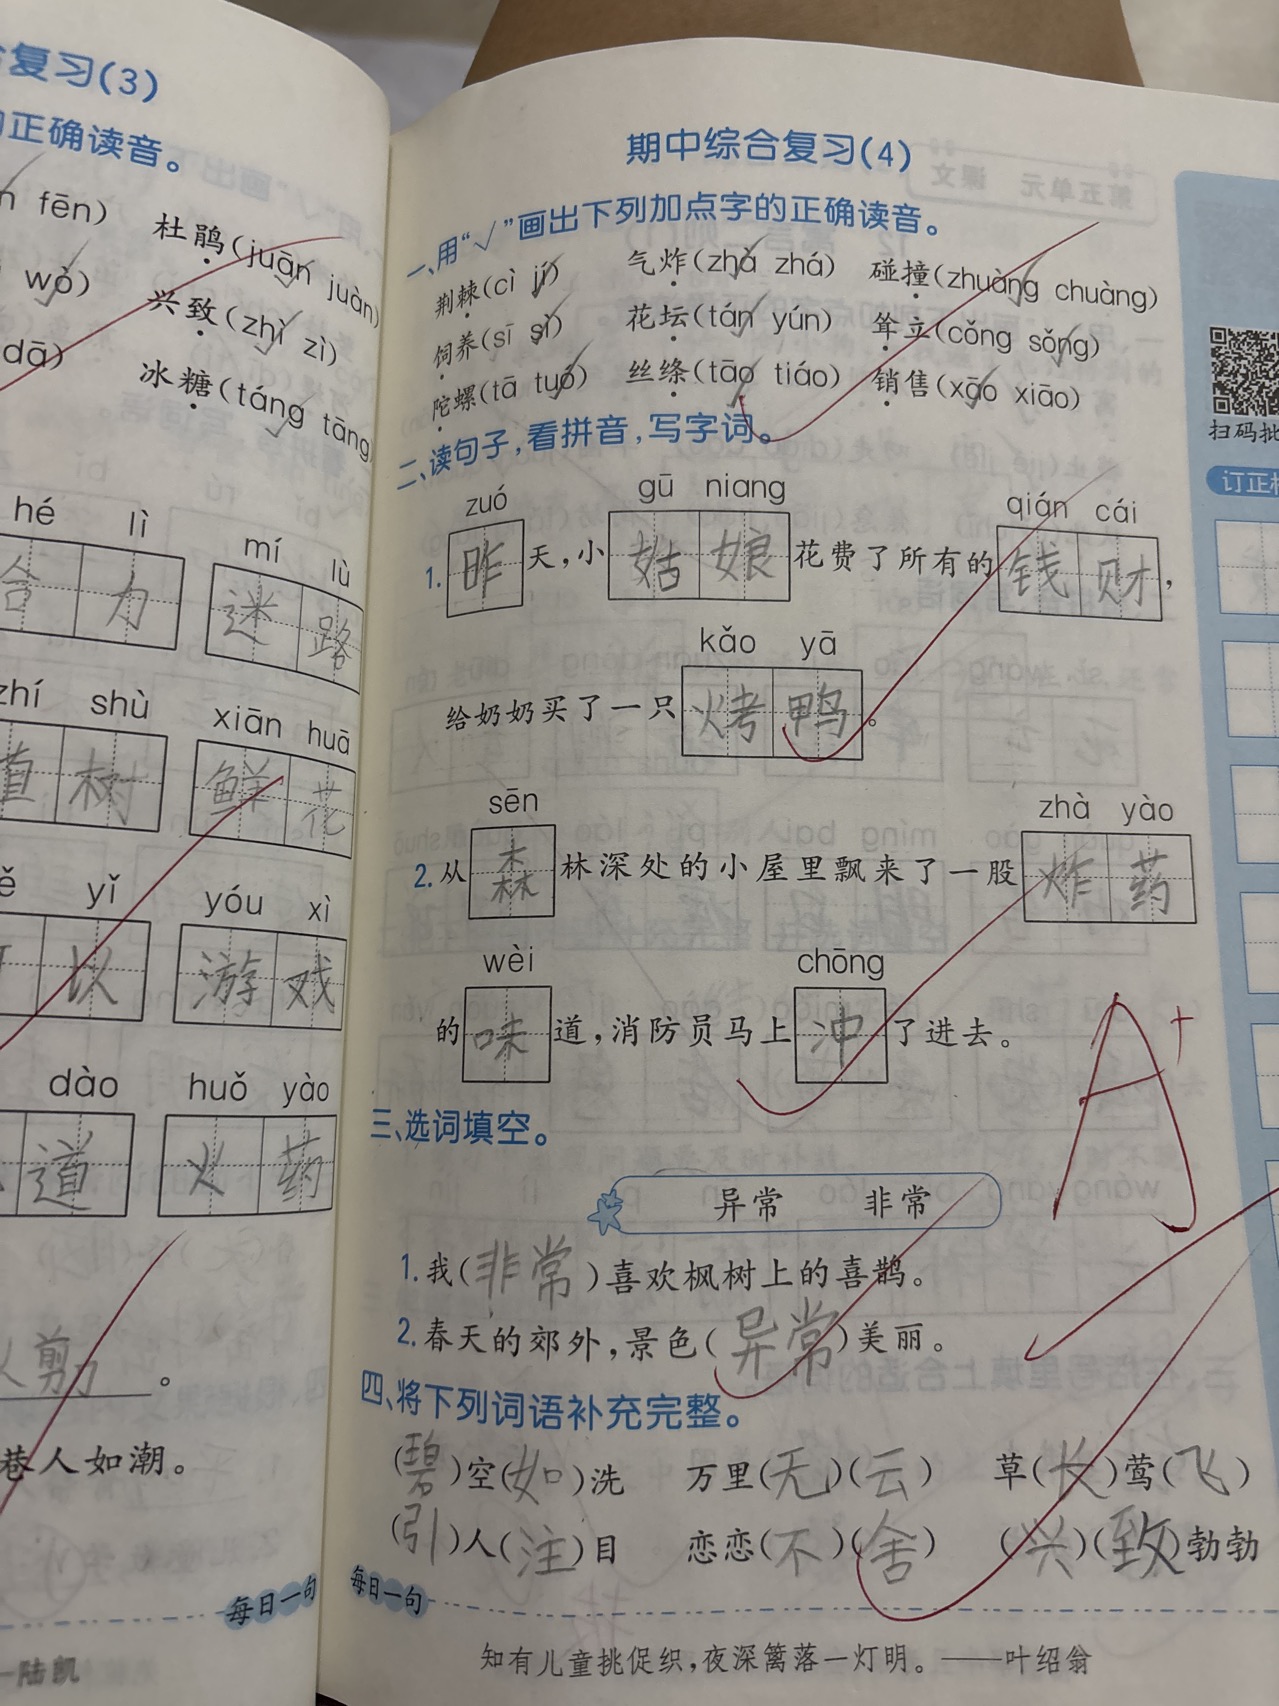 复习(3)
正确读音。
fēn) 杜鹃(juān juàn)
wò) 兴致(zhì zì)
dā) 冰糖(táng tāng
hé lì mí lù
合力 迷路
zhí shù xiān huā
植树 鲜花
yǐ yóu xì
以 游戏
dào huǒ yào
道 火药
剪。
巷人如潮。
每日一句
陆凯
期中综合复习(4)
一、用“√”画出下列加点字的正确读音。
荆棘(cì jí) 气炸(zhà zhá) 碰撞(zhuàng chuàng)
饲养(sī sì) 花坛(tán yún) 耸立(cǒng sǒng)
陀螺(tā tuó) 丝绦(tāo tiáo) 销售(xāo xiāo)
二、读句子,看拼音,写字词。
zuó gū niang qián cái
1.昨天,小姑娘花费了所有的钱财,
kǎo yā
给奶奶买了一只烤鸭。
sēn zhà yào
2.从森林深处的小屋里飘来了一股炸药
wèi chōng
的味道,消防员马上冲了进去。
三、选词填空。
异常 非常
1.我(非常)喜欢枫树上的喜鹊。
2.春天的郊外,景色(异常)美丽。
四、将下列词语补充完整。
(碧)空(如)洗 万里(无)(云) 草(长)莺(飞)
(引)人(注)目 恋恋(不)(舍) (兴)(致)勃勃
每日一句
知有儿童挑促织,夜深篱落一灯明。——叶绍翁
A+
扫码批
订正